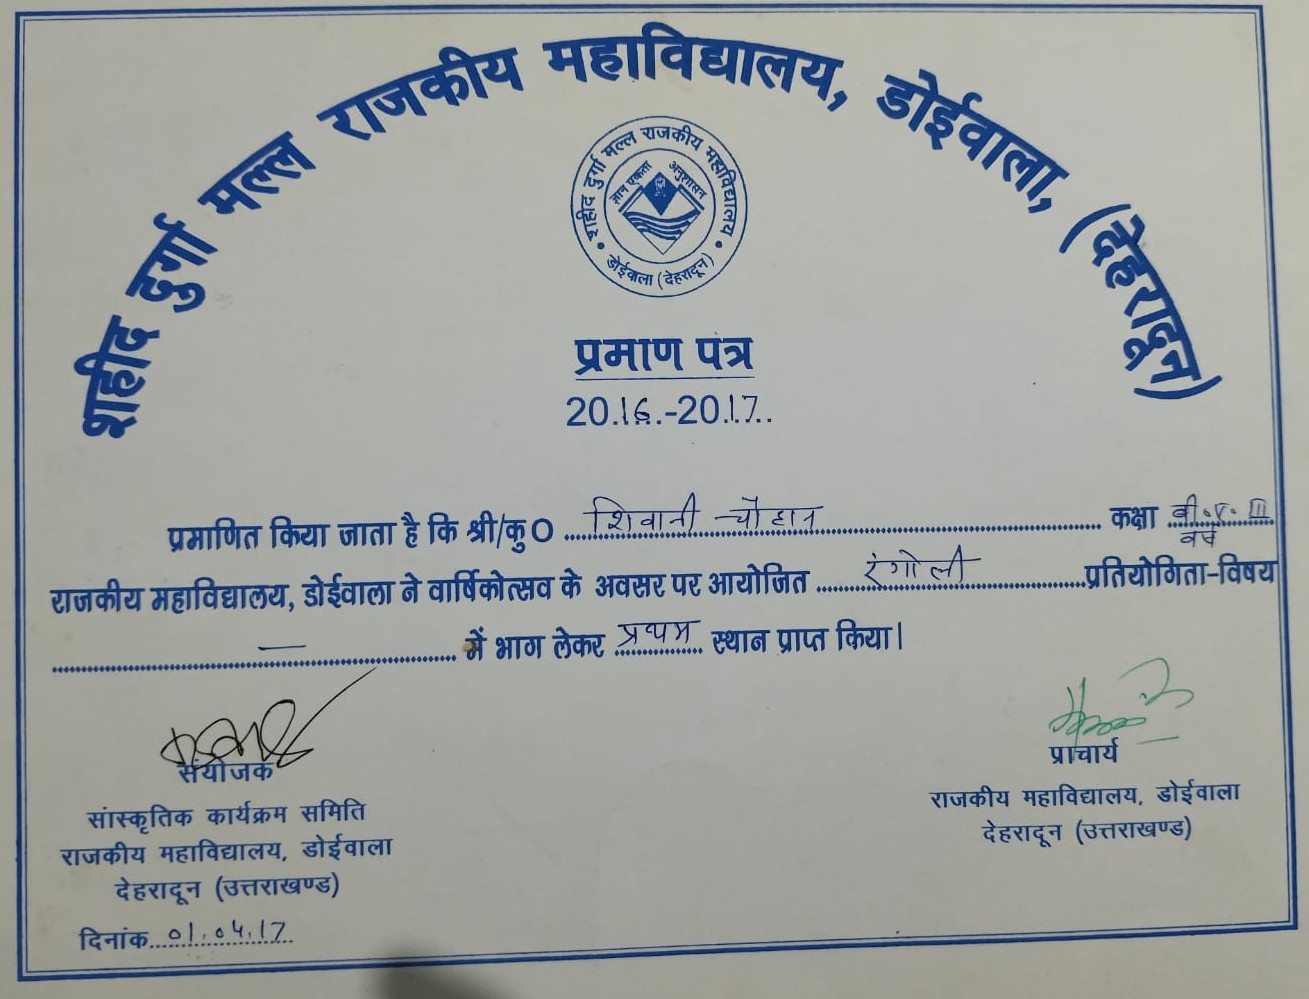 शहीद दुर्गा मल्ल राजकीय महाविद्यालय, डोईवाला, (देहरादून)
शहीद दुर्गा मल्ल राजकीय महाविद्यालय
ज्ञान एकता अनुशासन
डोईवाला (देहरादून)
प्रमाण पत्र
20.16.-20.17..
प्रमाणित किया जाता है कि श्री/कु0 शिवानी चौहान कक्षा बी.ए. III वर्ष
राजकीय महाविद्यालय, डोईवाला ने वार्षिकोत्सव के अवसर पर आयोजित रंगोली प्रतियोगिता-विषय
— में भाग लेकर प्रथम स्थान प्राप्त किया।
संयोजक
सांस्कृतिक कार्यक्रम समिति
राजकीय महाविद्यालय, डोईवाला
देहरादून (उत्तराखण्ड)
दिनांक 01.04.17
प्राचार्य
राजकीय महाविद्यालय, डोईवाला
देहरादून (उत्तराखण्ड)